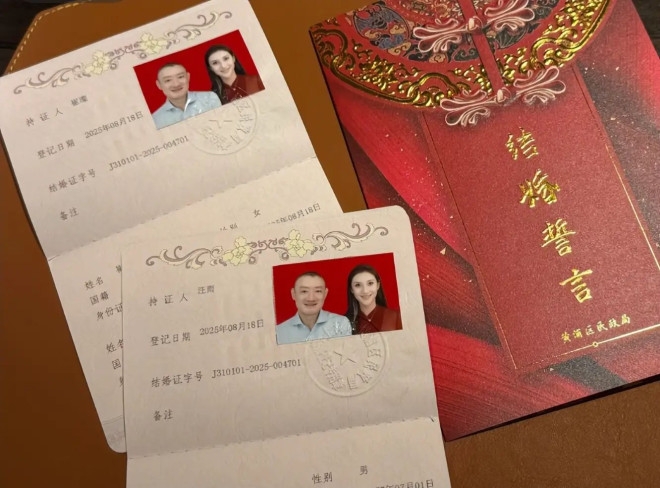 持证人 崔璀
登记日期 2025年08月18日
结婚证字号 J310101-2025-004701
备注
性别 女
年08月18日
姓名
国籍
身份证
姓名
国
持证人 汪雨
登记日期 2025年08月18日
结婚证字号 J310101-2025-004701
备注
性别 男
07月01日
结婚誓言
黄浦区民政局